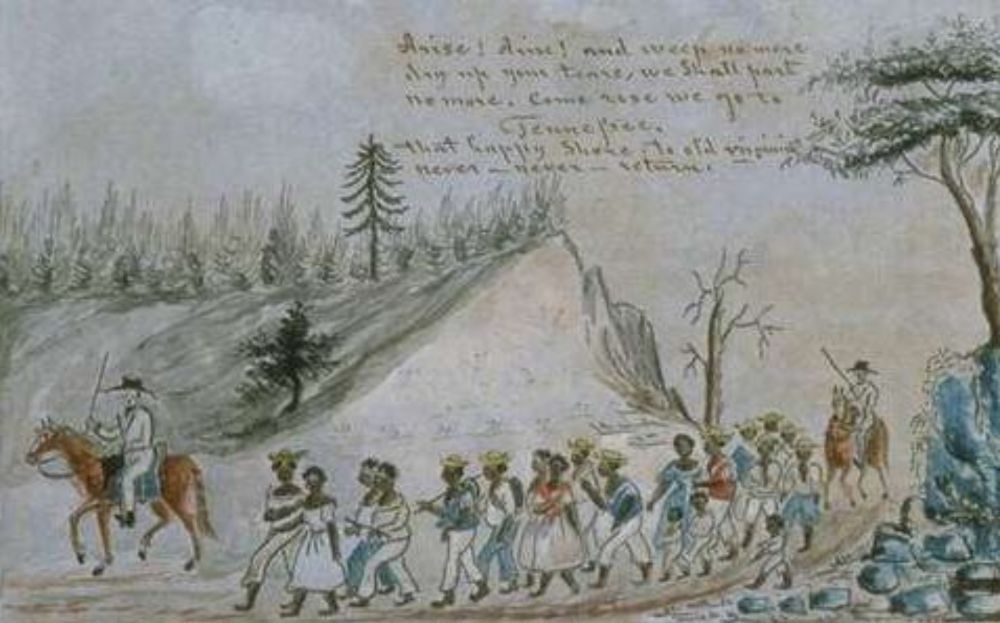 Arise! Arise! and weep no more
dry up your tears, we Shall part
no more. Come rose we go to
Tennessee.
that happy Shore. to old virginia
never – never – return. –